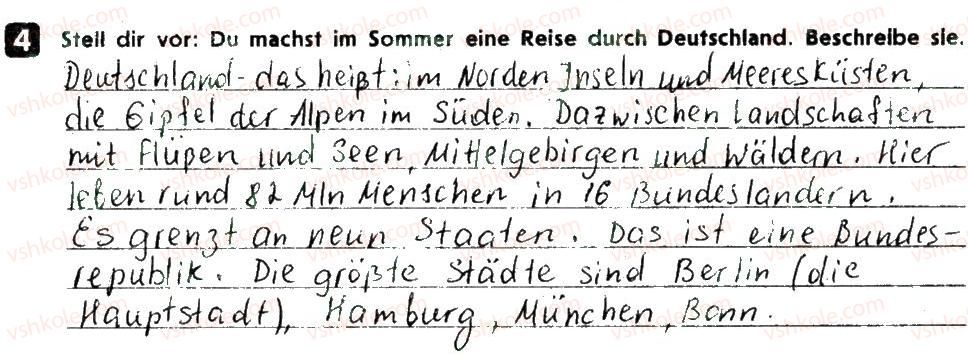 4 Stell dir vor: Du machst im Sommer eine Reise durch Deutschland. Beschreibe sie.
Deutschland - das heißt: im Norden Inseln und Meeresküsten,
die Gipfel der Alpen im Süden. Dazwischen Landschaften
mit Flüßen und Seen, Mittelgebirgen und Wäldern. Hier
leben rund 82 Mln Menschen in 16 Bundesländern.
Es grenzt an neun Staaten. Das ist eine Bundes-
republik. Die größte Städte sind Berlin (die
Hauptstadt), Hamburg, München, Bonn.